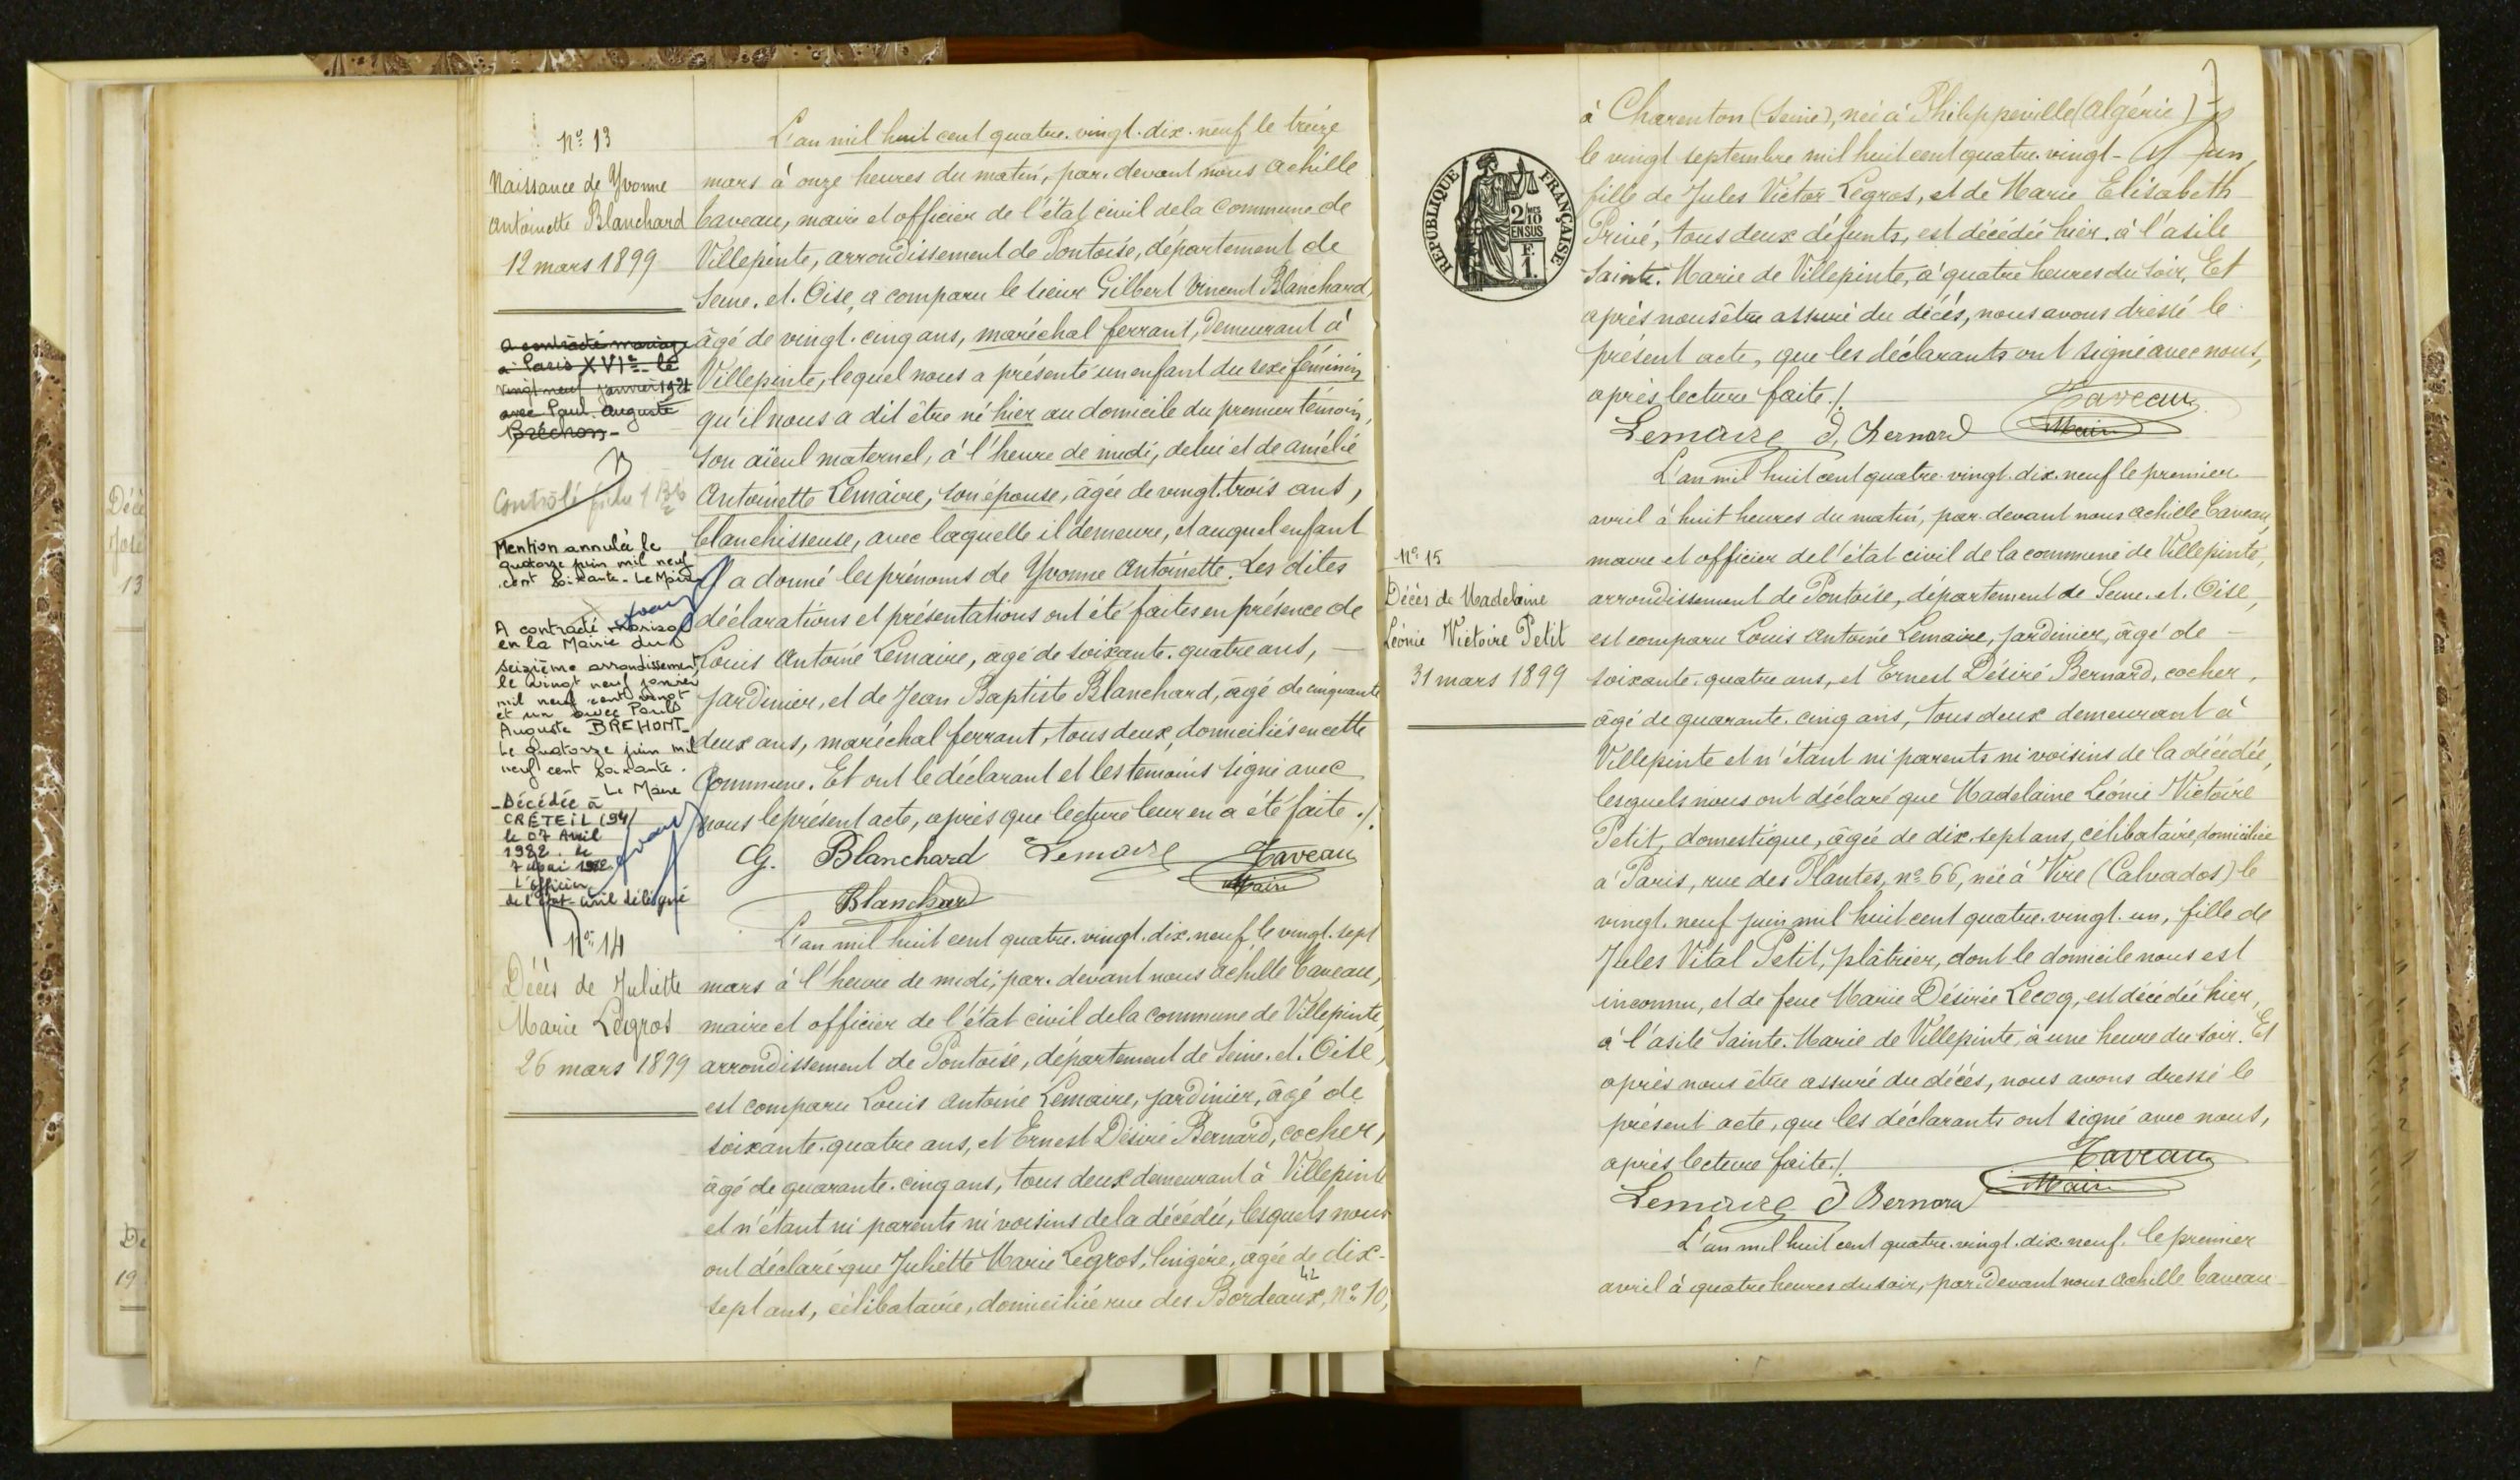 Nº 13
Naissance de Yvonne
Antoinette Blanchard
12 mars 1899
a contracté mariage
à Paris XVIe le
vingt neuf janvier 1921
avec Paul Auguste
Bréchon -
Contrôlé
Mention annulée le
quatorze juin mil neuf
cent soixante - Le Maire
A contracté mariage
en la Mairie du
seizième arrondissement
le vingt neuf janvier
mil neuf cent vingt
et un avec Paul
Auguste BREHONT -
Le quatorze juin mil
neuf cent soixante.
Le Maire
- Décédée à
CRETEIL (94)
le 07 Avril
1982. le
7 Mai 1982
L'officier
de l'état-civil délégué
L'an mil huit cent quatre.vingt.dix.neuf le treize
mars à onze heures du matin, par.devant nous Achille
Taveau, maire et officier de l'état civil de la commune de
Villepinte, arrondissement de Pontoise, département de
Seine.et.Oise, a comparu le sieur Gilbert Vincent Blanchard,
âgé de vingt.cinq ans, maréchal ferrant, demeurant à
Villepinte, lequel nous a présenté un enfant du sexe féminin
qu'il nous a dit être né hier au domicile du premier témoin,
son aïeul maternel, à l'heure de midi, de lui et de Amélie
Antoinette Lemaire, son épouse, âgée de vingt.trois ans,
blanchisseuse, avec laquelle il demeure, et auquel enfant
il a donné les prénoms de Yvonne Antoinette. Les dites
déclarations et présentations ont été faites en présence de
Louis Antoine Lemaire, âgé de soixante.quatre ans, -
jardinier, et de Jean Baptiste Blanchard, âgé de cinquante
deux ans, maréchal ferrant, tous deux domiciliés en cette
commune. Et ont le déclarant et les témoins signé avec
nous le présent acte, après que lecture leur en a été faite ./.
G. Blanchard Lemaire Taveau
Blanchard Maire
Nº 14
Décès de Juliette
Marie Legros
26 mars 1899
L'an mil huit cent quatre.vingt.dix.neuf le vingt.sept
mars à l'heure de midi, par.devant nous Achille Taveau,
maire et officier de l'état civil de la commune de Villepinte,
arrondissement de Pontoise, département de Seine.et.Oise,
est comparu Louis Antoine Lemaire, jardinier, âgé de
soixante.quatre ans, et Ernest Désiré Bernard, cocher,
âgé de quarante.cinq ans, tous deux demeurant à Villepinte
et n'étant ni parents ni voisins de la décédée, lesquels nous
ont déclaré que Juliette Marie Legros, lingère, âgée de dix-
sept ans, célibataire, domiciliée rue des Bordeaux, nº 10,
42
à Charenton (Seine), née à Philippeville (Algérie)
le vingt septembre mil huit cent quatre.vingt - un,
fille de Jules Victor Legros, et de Marie Elisabeth
Privé, tous deux défunts, est décédée hier à l'asile
Sainte.Marie de Villepinte, à quatre heures du soir. Et
après nous être assuré du décès, nous avons dressé le
présent acte, que les déclarants ont signé avec nous,
après lecture faite ./.
Taveau
Lemaire Bernard Maire
RÉPUBLIQUE FRANÇAISE
2/10 EN SUS
F. 1.
Nº 15
Décès de Madelaine
Léonie Victoire Petit
31 mars 1899
L'an mil huit cent quatre.vingt.dix.neuf le premier
avril à huit heures du matin, par.devant nous Achille Taveau,
maire et officier de l'état civil de la commune de Villepinte,
arrondissement de Pontoise, département de Seine.et.Oise,
est comparu Louis Antoine Lemaire, jardinier, âgé de -
soixante.quatre ans, et Ernest Désiré Bernard, cocher,
âgé de quarante.cinq ans, tous deux demeurant à
Villepinte et n'étant ni parents ni voisins de la décédée,
lesquels nous ont déclaré que Madelaine Léonie Victoire
Petit, domestique, âgée de dix.sept ans, célibataire, domiciliée
à Paris, rue des Plantes, nº 66, née à Vire (Calvados) le
vingt.neuf juin mil huit cent quatre.vingt.un, fille de
Jules Vital Petit, plâtrier, dont le domicile nous est
inconnu, et de feue Marie Désirée Lecoq, est décédée hier,
à l'asile Sainte.Marie de Villepinte, à une heure du soir. Et
après nous être assuré du décès, nous avons dressé le
présent acte, que les déclarants ont signé avec nous,
après lecture faite ./.
Taveau
Lemaire Bernard Maire
L'an mil huit cent quatre.vingt.dix.neuf, le premier
avril à quatre heures du soir, par.devant nous Achille Taveau